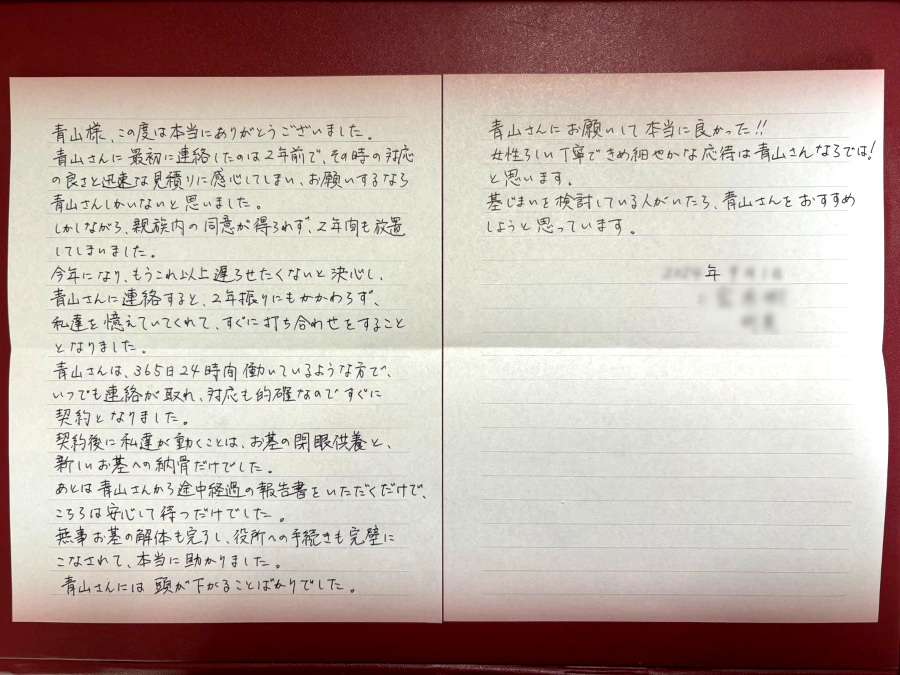 青山様、この度は本当にありがとうございました。
青山さんに最初に連絡したのは2年前で、その時の対応
の良さと迅速な見積りに感心してしまい、お願いするなら
青山さんしかいないと思いました。
しかしながら、親族内の同意が得られず、2年間も放置
してしまいました。
今年になり、もうこれ以上遅らせたくないと決心し、
青山さんに連絡すると、2年振りにもかかわらず、
私達を憶えていてくれて、すぐに打ち合わせをすること
となりました。
青山さんは、365日24時間働いているような方で、
いつでも連絡が取れ、対応も的確なのですぐに
契約となりました。
契約後に私達が動くことは、お墓の閉眼供養と、
新しいお墓への納骨だけでした。
あとは青山さんから途中経過の報告書をいただくだけで、
こちらは安心して待つだけでした。
無事お墓の解体も完了し、役所への手続きも完璧に
こなされて、本当に助かりました。
青山さんには頭が下がることばかりでした。
青山さんにお願いして本当に良かった!!
女性らしい丁寧できめ細やかな応待は青山さんならでは!
と思います。
墓じまいを検討している人がいたら、青山さんをおすすめ
しようと思っています。
年